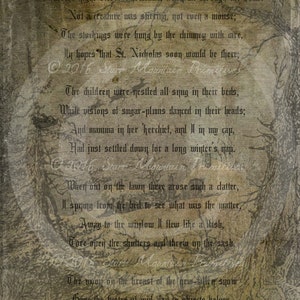 Not a creature was stirring, not even a mouse;
The stockings were hung by the chimney with care,
In hopes that St. Nicholas soon would be there;
The children were nestled all snug in their beds,
While visions of sugar-plums danced in their heads;
And mamma in her 'kerchief, and I in my cap,
Had just settled down for a long winter's nap,
When out on the lawn there arose such a clatter,
I sprang from the bed to see what was the matter.
Away to the window I flew like a flash,
Tore open the shutters and threw up the sash.
The moon on the breast of the new-fallen snow